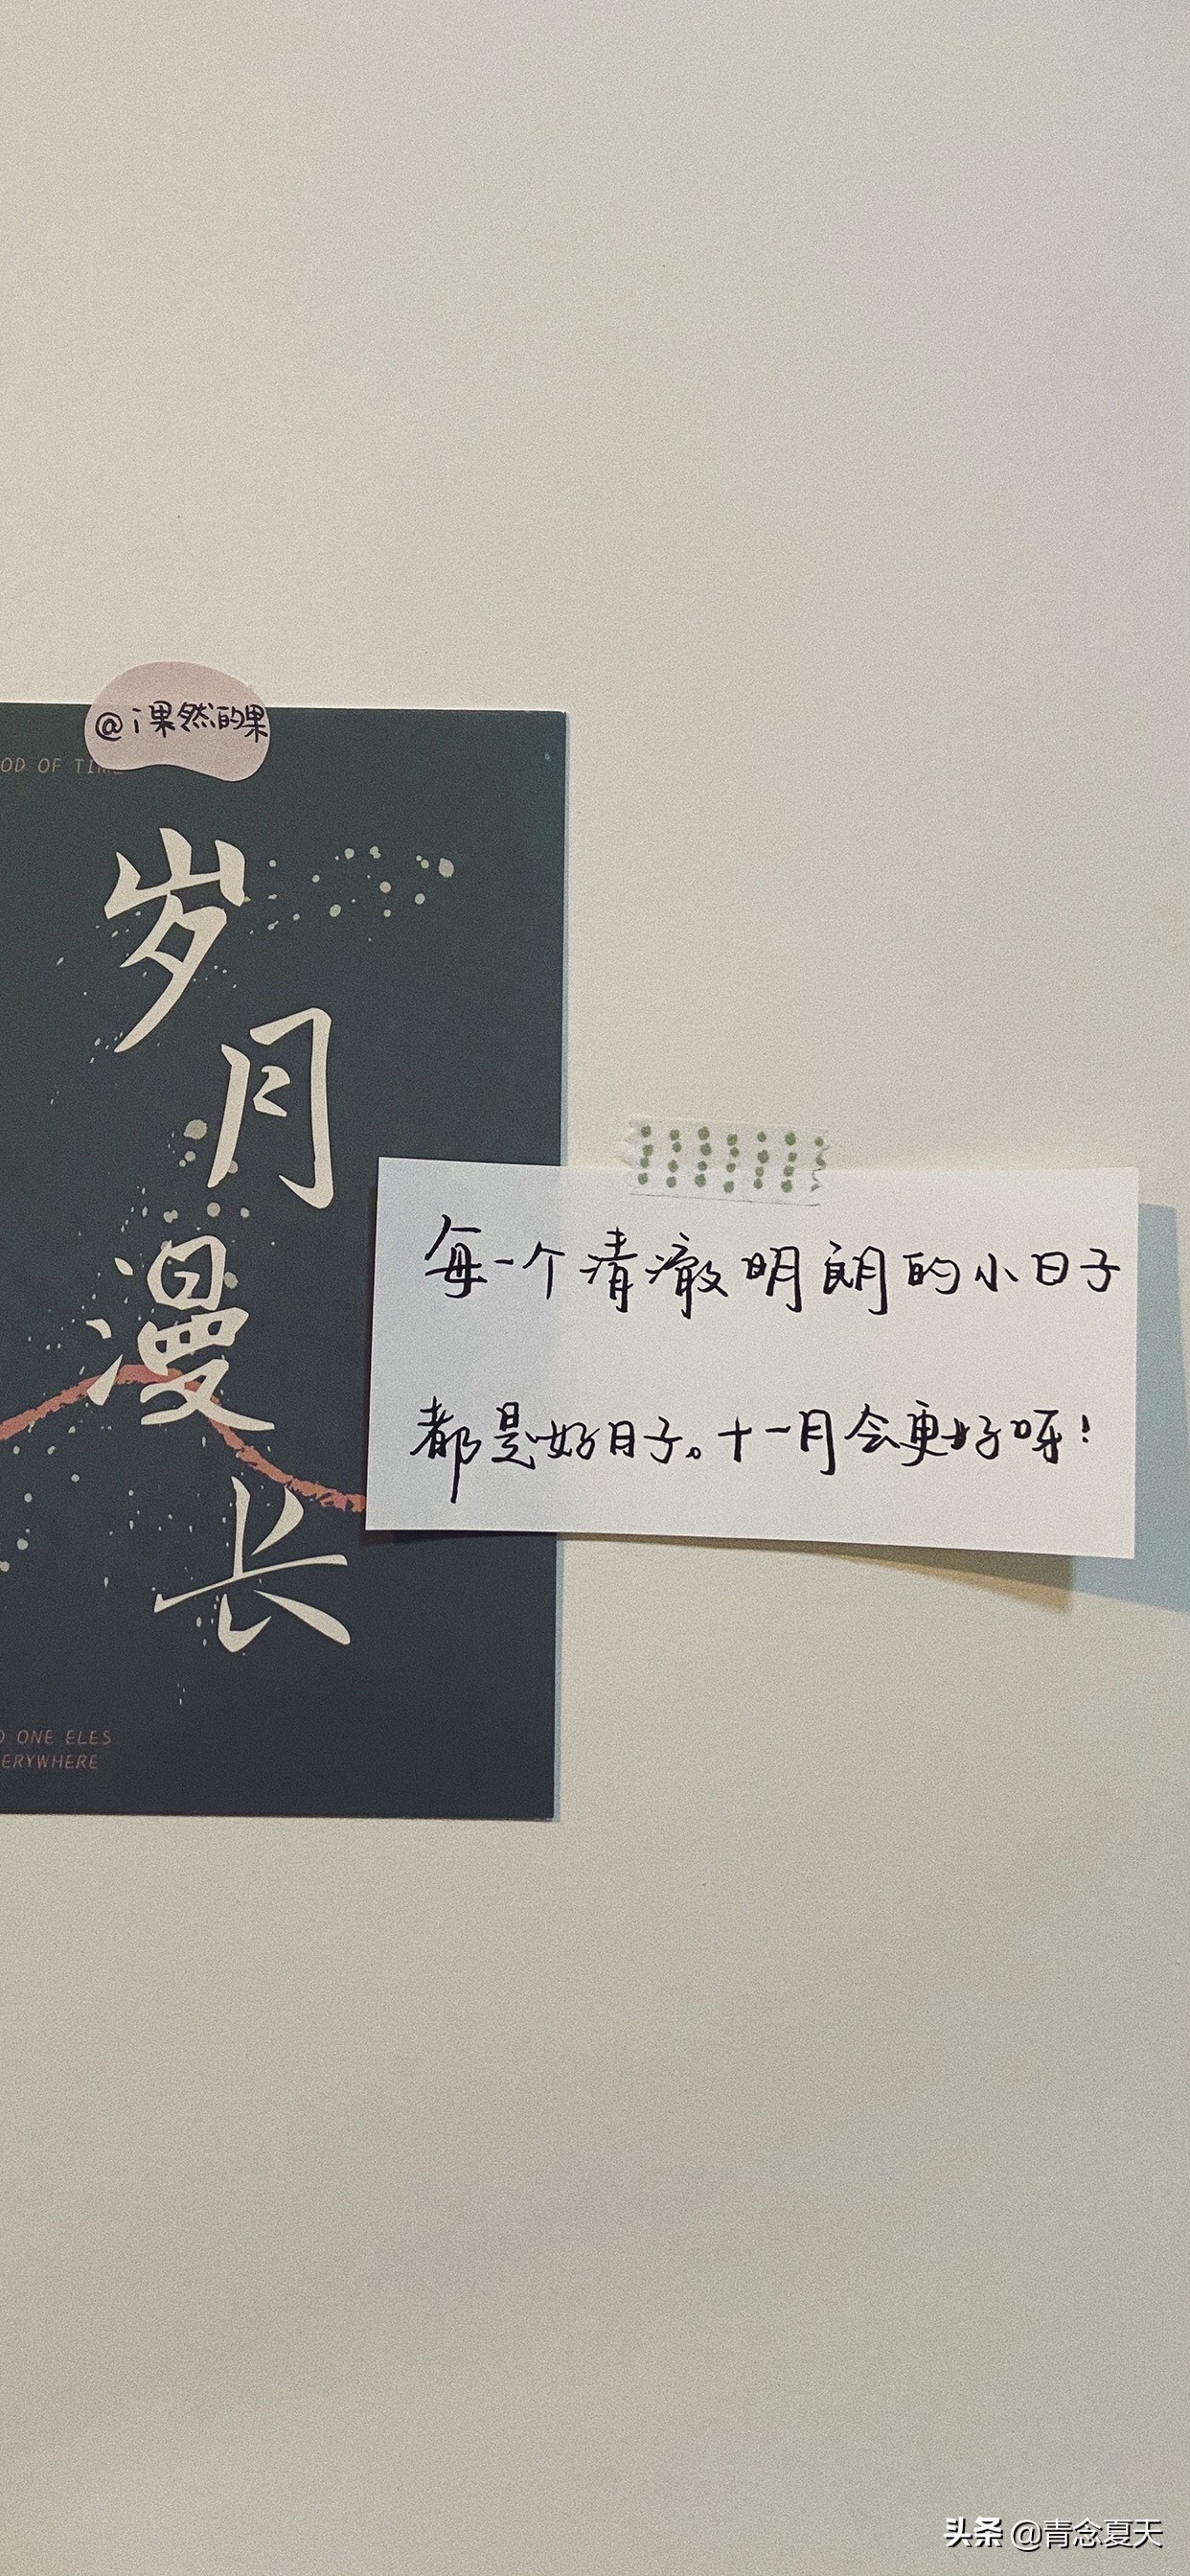 @i果然的果
OD OF TIME
岁月漫长
每一个清澈明朗的小日子
都是好日子。十一月会更好呀!
ONE ELES
ERYWHERE
头条 @青念夏天